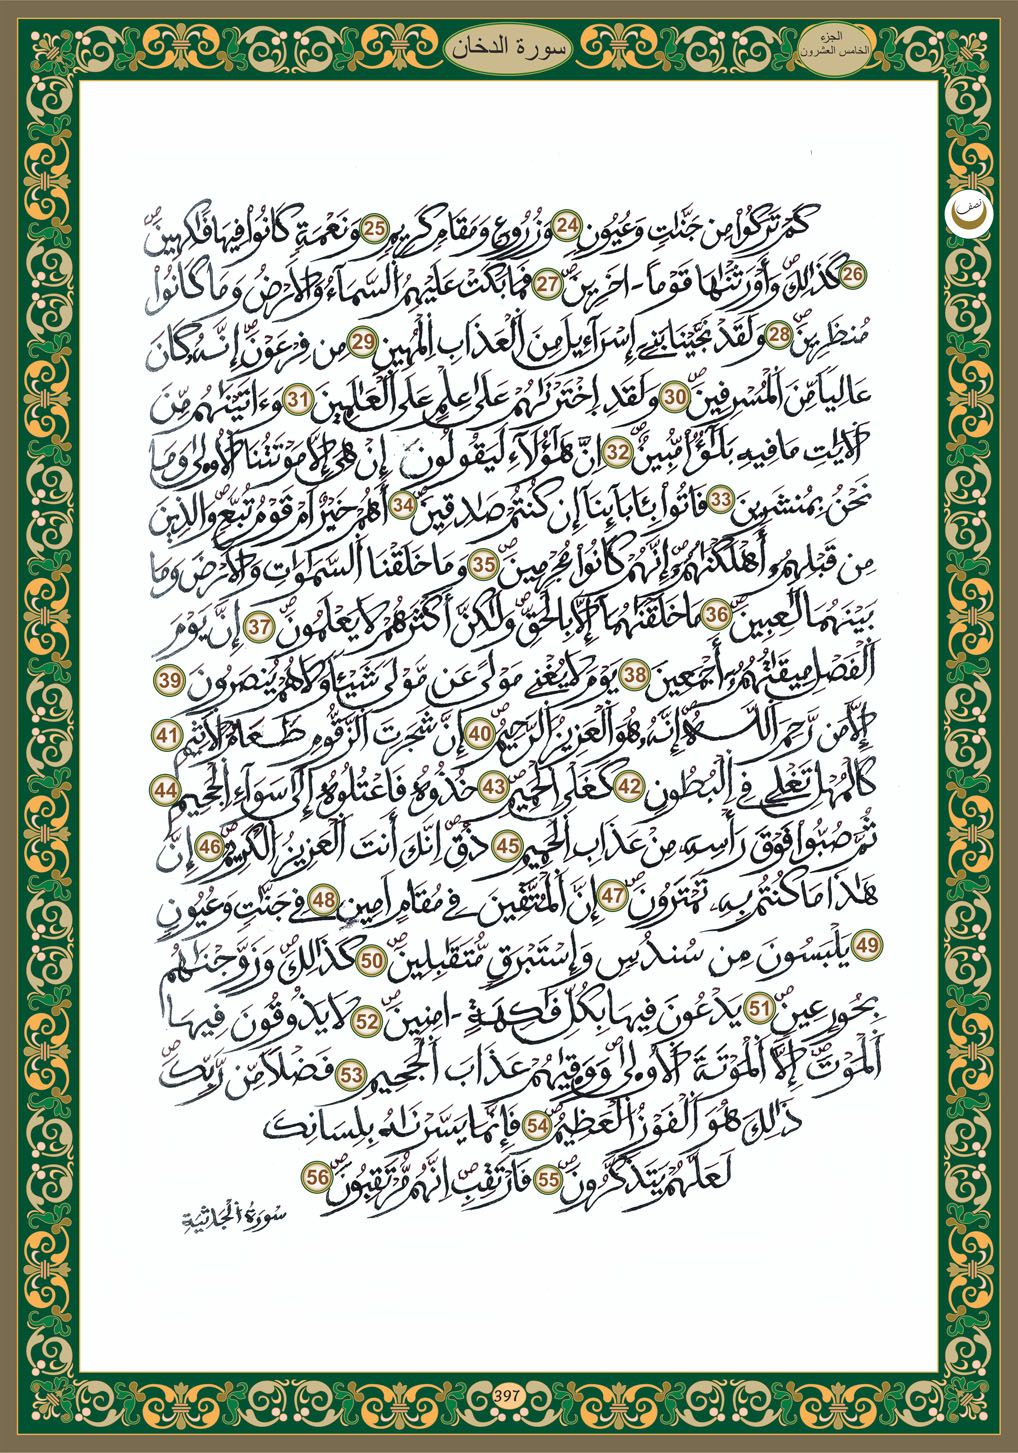 سورة الدخان
الجزء
الخامس العشرون
نصف
كَمْ تَرَكُواْ مِن جَنَّٰتٖ وَعُيُونٖ 24 وَزُرُوعٖ وَمَقَامٖ كَرِيمٖ 25 وَنَعْمَةٖ كَانُواْ فِيهَا فَٰكِهِينَۖ
26 كَذَٰلِكَۖ وَأَوْرَثْنَٰهَا قَوْماً ـ اخَرِينَۖ 27 فَمَا بَكَتْ عَلَيْهِمُ السَّمَآءُ وَالَارْضُ وَمَا كَانُواْ
مُنظَرِينَۖ 28 وَلَقَدْ نَجَّيْنَا بَنِےٓ إِسْرَآءِيلَ مِنَ اَلْعَذَابِ اِلْمُهِينِ 29 مِن فِرْعَوْنَۖ إِنَّهُۥ كَانَ
عَالِياٗ مِّنَ اَلْمُسْرِفِينَۖ 30 وَلَقَدِ اِخْتَرْنَٰهُمْ عَلَىٰ عِلْمٍ عَلَى اَلْعَٰلَمِينَ 31 وَءَاتَيْنَٰهُم مِّنَ
اَلَايَٰتِ مَا فِيهِ بَلَٰٓؤٞاْ مُّبِينٌۖ 32 اِنَّ هَٰٓؤُلَآءِ لَيَقُولُونَ إِنْ هِىَ إِلَّا مَوْتَتُنَا اَلُاولَىٰ وَمَا
نَحْنُ بِمُنشَرِينَۖ 33 فَاتُواْ بِـَٔابَآئِنَآ إِن كُنتُمْ صَٰدِقِينَۖ 34 أَهُمْ خَيْرٌ اَمْ قَوْمُ تُبَّعٖ وَالذِينَ
مِن قَبْلِهِمُۥٓ أَهْلَكْنَٰهُمُۥٓۖ إِنَّهُمْ كَانُواْ مُجْرِمِينَۖ 35 وَمَا خَلَقْنَا اَلسَّمَٰوَٰتِ وَالَارْضَ وَمَا
بَيْنَهُمَا لَٰعِبِينَۖ 36 مَا خَلَقْنَٰهُمَآ إِلَّا بِالْحَقِّۖ وَلَٰكِنَّ أَكْثَرَهُمْ لَا يَعْلَمُونَۖ 37 إِنَّ يَوْمَ
اَلْفَصْلِ مِيقَٰتُهُمُۥٓ أَجْمَعِينَ 38 يَوْمَ لَا يُغْنِے مَوْلىً عَن مَّوْلىٗ شَيْـٔاٗ وَلَا هُمْ يُنصَرُونَ 39
إِلَّا مَن رَّحِمَ اَللَّهُۖ إِنَّهُۥ هُوَ اَلْعَزِيزُ اُلرَّحِيمُۖ 40 إِنَّ شَجَرَتَ اَلزَّقُّومِ طَعَامُ الَاثِيمِ 41
كَالْمُهْلِ تَغْلِے فِے اِلْبُطُونِ 42 كَغَلْىِ اِلْحَمِيمِۖ 43 خُذُوهُ فَاعْتُلُوهُ إِلَىٰ سَوَآءِ اِلْجَحِيمِ 44
ثُمَّ صُبُّواْ فَوْقَ رَأْسِهِۦ مِنْ عَذَابِ اِلْحَمِيمِۖ 45 ذُقِۖ اِنَّكَ أَنتَ اَلْعَزِيزُ اُلْكَرِيمُۖ 46 إِنَّ
هَٰذَا مَا كُنتُم بِهِۦ تَمْتَرُونَۖ 47 إِنَّ اَلْمُتَّقِينَ فِے مُقَامٍ اَمِينٖ 48 فِے جَنَّٰتٖ وَعُيُونٖ
49 يَلْبَسُونَ مِن سُندُسٖ وَإِسْتَبْرَقٖ مُّتَقَٰبِلِينَۖ 50 كَذَٰلِكَۖ وَزَوَّجْنَٰهُم
بِحُورٍ عِينٖۖ 51 يَدْعُونَ فِيهَا بِكُلِّ فَٰكِهَةٍ ـ امِنِينَۖ 52 لَا يَذُوقُونَ فِيهَا
اَلْمَوْتَۖ إِلَّا اَلْمَوْتَةَ اَلُاولَىٰۖ وَوَقَيٰهُمْ عَذَابَ اَلْجَحِيمِ 53 فَضْلاٗ مِّن رَّبِّكَۖ
ذَٰلِكَ هُوَ اَلْفَوْزُ اُلْعَظِيمُۖ 54 فَإِنَّمَا يَسَّرْنَٰهُ بِلِسَانِكَ
لَعَلَّهُمْ يَتَذَكَّرُونَۖ 55 فَارْتَقِبِۖ اِنَّهُم مُّرْتَقِبُونَۖ 56
سورة الجاثية
397